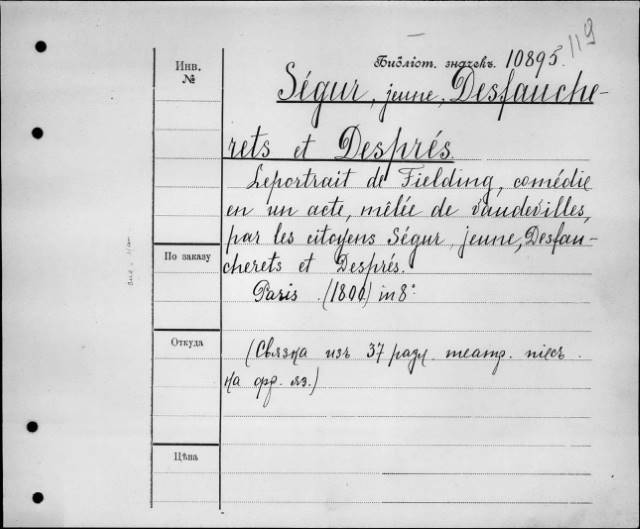 Библіот. значекъ. 10895. 119
Инв.
№
Ségur, jeune, Desfauche-
rets et Després.
Leportrait de Fielding, comédie
en un acte, mêlée de vaudevilles,
par les citoyens Ségur jeune, Desfau-
cherets et Després.
По заказу
Paris. (1800) in 8°
Откуда
(Связка изъ 37 разл. театр. піес.
на фр. яз.)
Цѣна